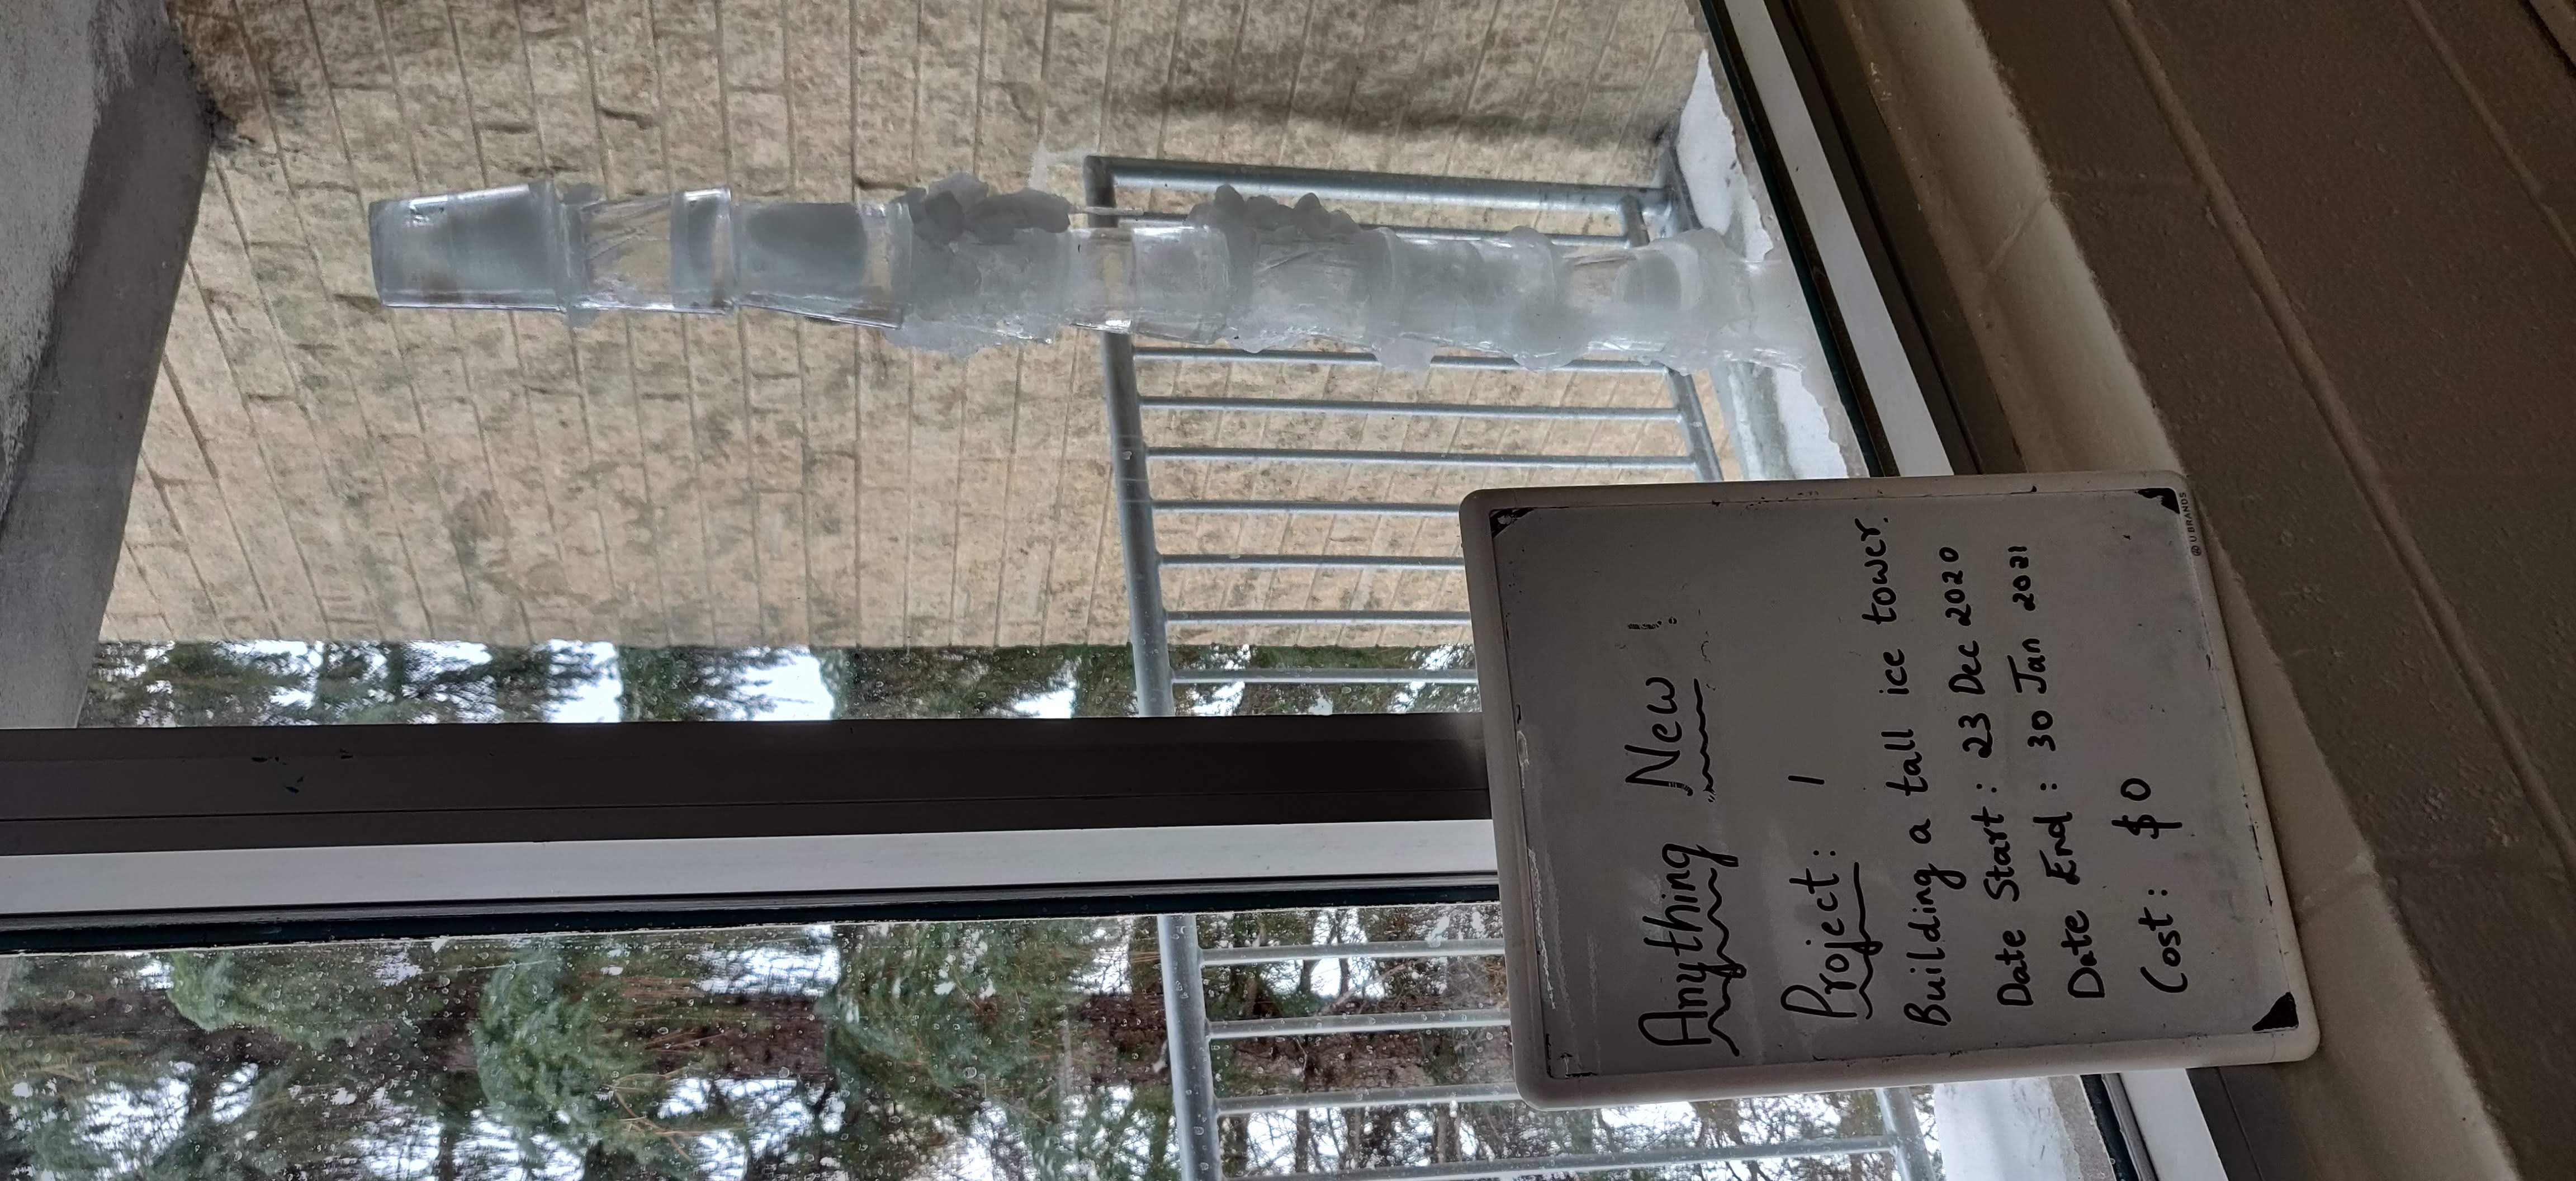 Anything New !
Project: 1
Building a tall ice tower.
Date Start: 23 Dec 2020
Date End: 30 Jan 2021
Cost: $0
U BRANDS